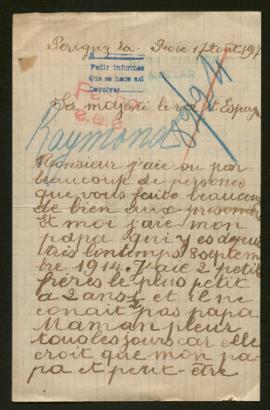 Perigny la Rose 1 Sept 1917
Pedir informes
Que se hace asi
Devolver
Sa majesté le roi d'Espag
Raymond
Monsieur j'aie ou par
beaucoup de personnes
que vous faite beaucoup
de bien aux prisonni
Et moi j'aie mon
papa qui y es depui
très lontemps 8 septem
bre 1914. J'aie 2 petits
frères le plus petit
a 2 ans ½ et il ne
conait pas papa
Maman pleur
tous les jours car elle
croit que mon pa
pa et peut-être